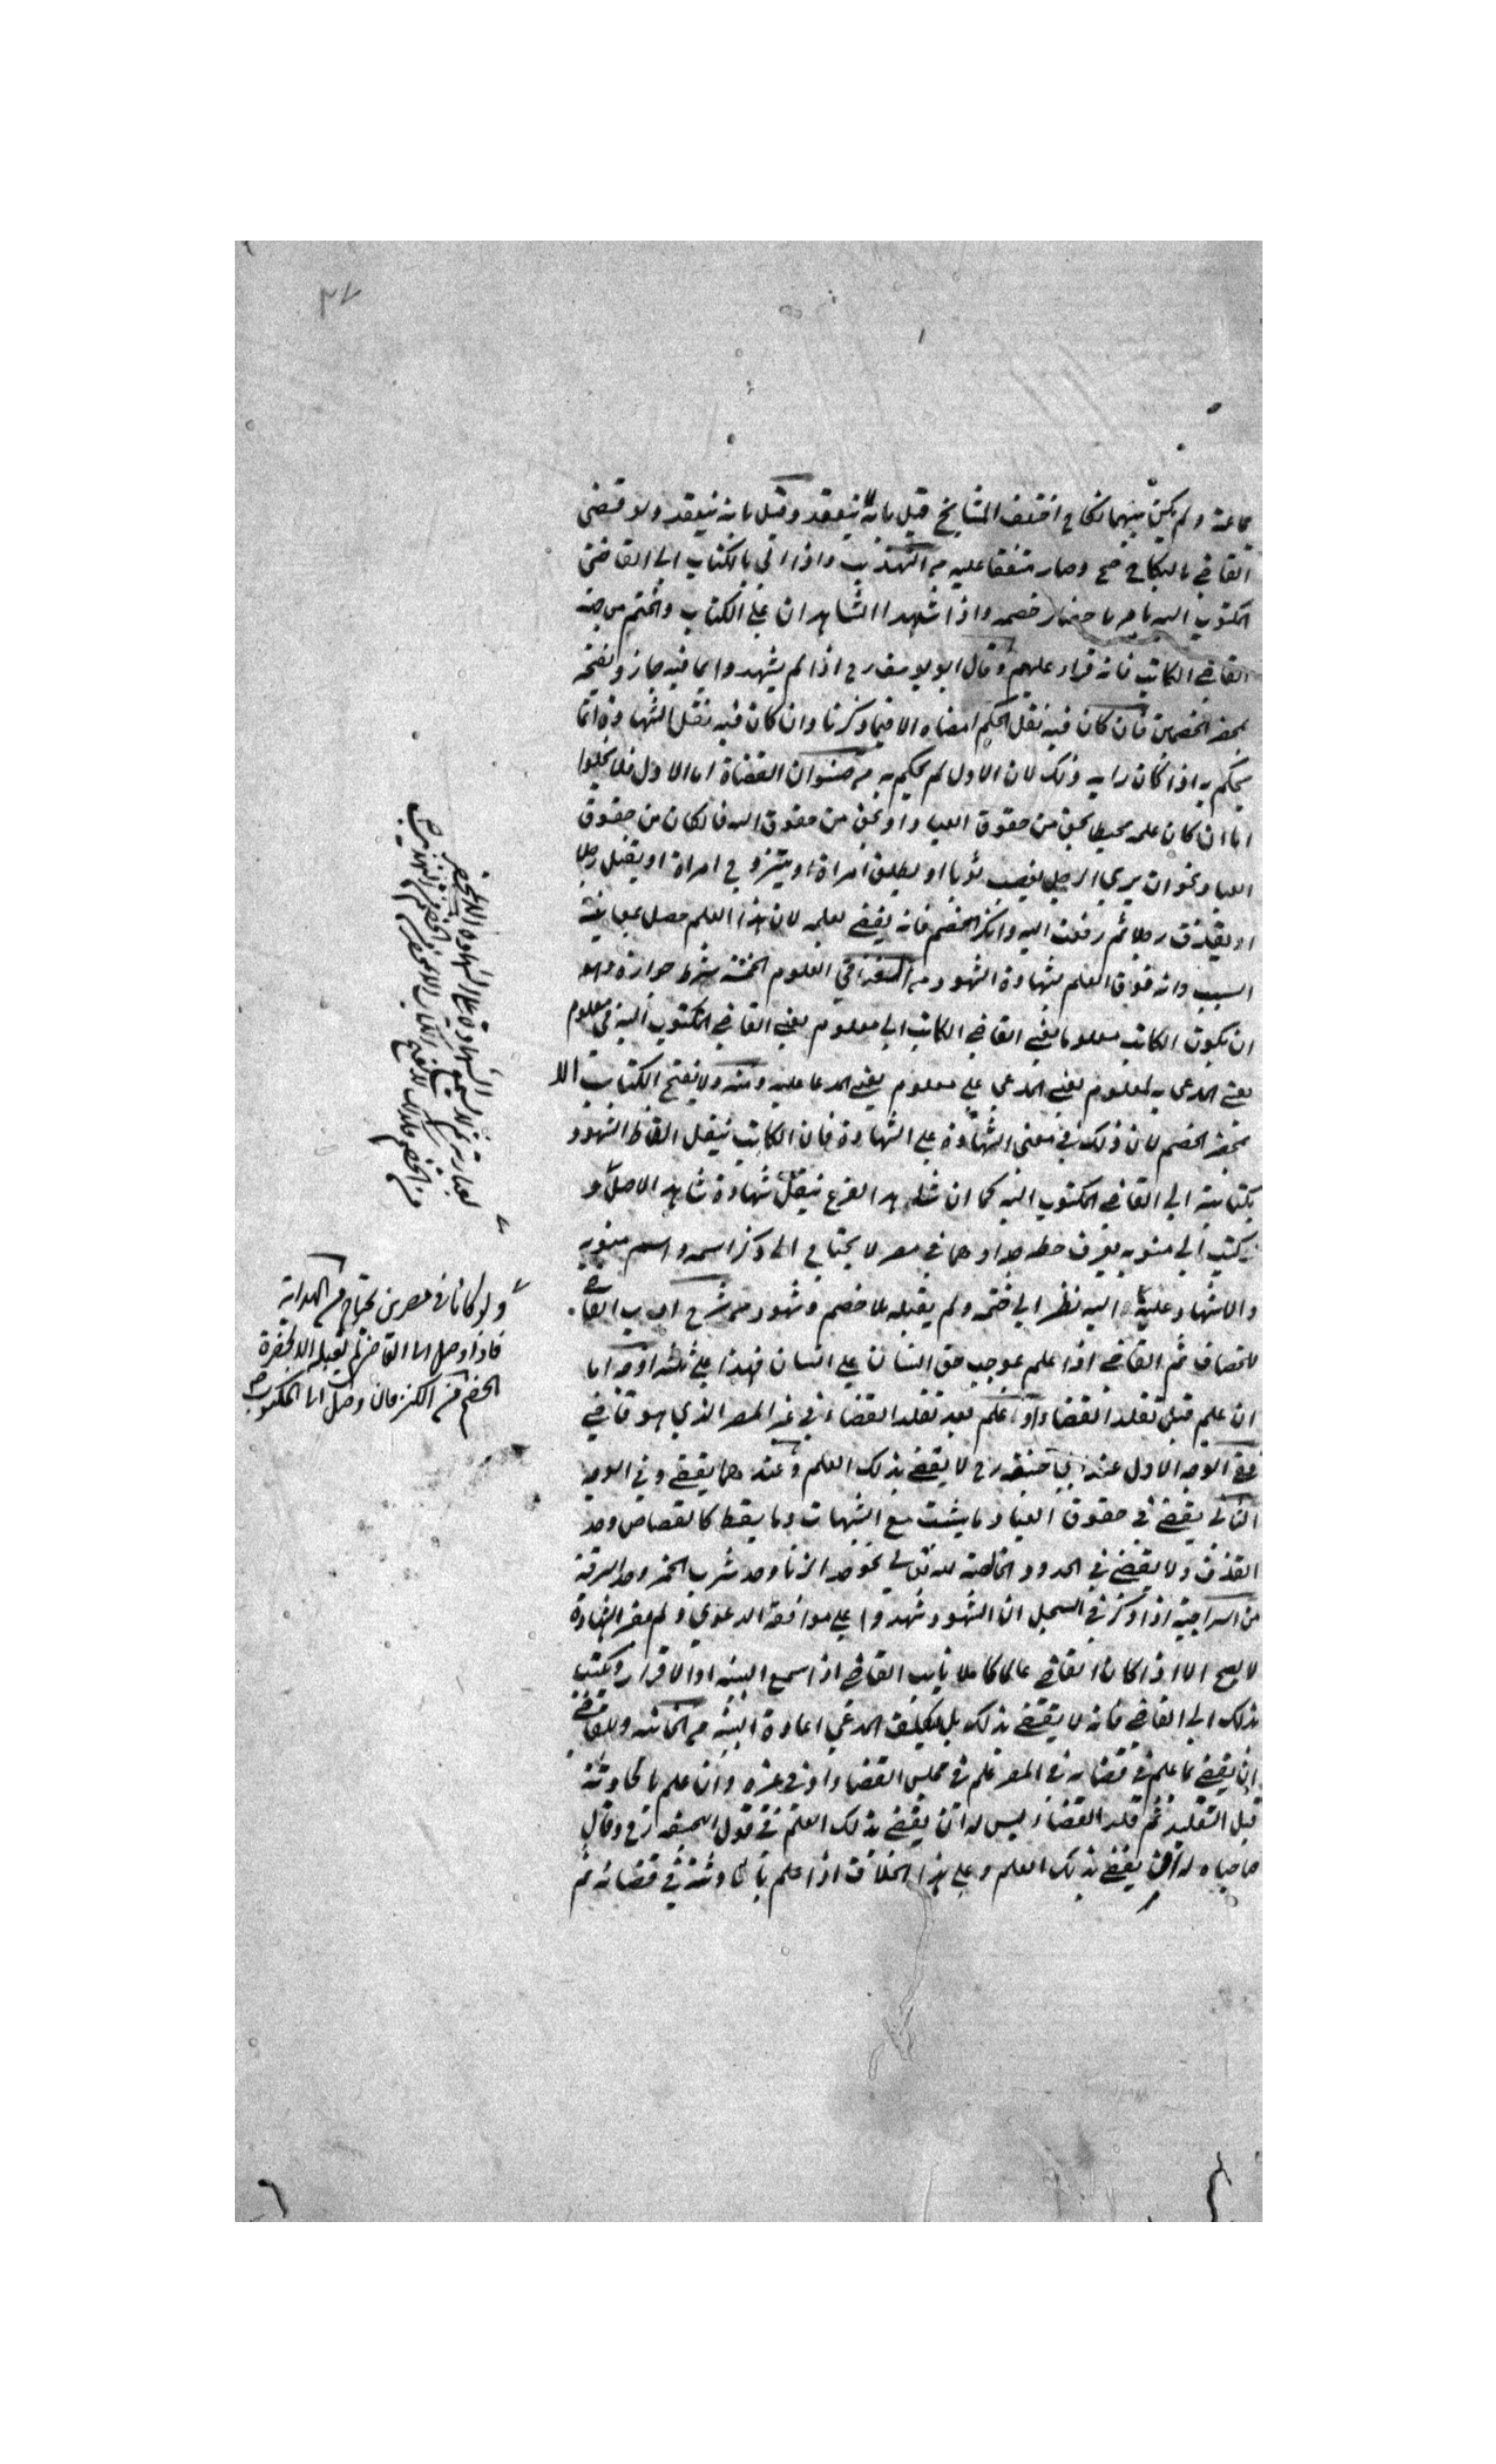 جماعة ولم يكن بينهما نكاح اختلف المشايخ قيل بانه لا ينعقد وقيل بانه ينعقد ولو قضى
القاضي بالنكاح صح وصار متفقا عليه من التهذيب واذا اتي بالكتاب الى القاضي
المكتوب اليه يامره باحضار خصمه واذا شهدا الشاهدان على الكتاب والختم من جهة
القاضي الكاتب فانه قراه عليهم وقال ابو يوسف رح اذا لم يشهدوا بما فيه جاز ويفتحه
بمحضر الخصمين فان كان فيه نقل الحكم امضاه الا فيما ذكرنا وان كان فيه نقل الشهادة انما
يحكم به اذا كان رايه وذلك لان الاول لم يحكم به من صنوان القضاة اما الاول فلا يخلوا
اما ان كان علمه محيطا بحق من حقوق العباد او بحق من حقوق الله فان كان من حقوق
العباد نحو ان يري الرجل يغصب ثوبا او يطلق امراة او يتزوج امراة او يقتل رجلا
او يقذف رجلا ثم رفعت اليه وانكر الخصم فانه يقضي بعلمه لان هذا العلم حصل بمعاينة
السبب وانه فوق العلم بشهادة الشهود من العلوم الخمسة شرط جوازه وهو
ان يكون الكاتب معلوما يعني القاضي الكاتب الى معلوم يعني القاضي المكتوب اليه في معلوم
يعني المدعى به لمعلوم يعني المدعي على معلوم يعني المدعا عليه ومنه ولا يفتح الكتاب الا
بمحضر الخصم لان ذلك في معنى الشهادة على الشهادة فان الكاتب ينقل الفاظ الشهود
بكتابته الى القاضي المكتوب اليه كما ان شاهد الفرع ينقل شهادة شاهد الاصل ولو
كتب الى منوبه يعرف خطه وهما في مصر لا يحتاج الى ذكر اسمه واسم منوبه
والاشهاد عليه اليه نظر الى ختمه ولم يقبله بلا خصم وشهود من شرح ادب القاضي
للخصاف ثم القاضي اذا علم بموجب حق انسان على انسان فهذا على ثلثة اوجه اما
ان علم قبل تقلد القضاء او علم بعد تقلد القضاء في غير المصر الذي هو قاضي
ففي الوجه الاول عند ابي حنيفة رح لا يقضي بذلك العلم وعندهما يقضي وفي الوجه
الثاني يقضي في حقوق العباد ما يثبت مع الشبهات وما يسقط كالقصاص وحد
القذف ولا يقضي في الحدود الخالصة لله تعالى نحو حد الزنا وحد شرب الخمر وحد السرقة
من السراجية اذا ذكر في السجل ان الشهود شهدوا على موافقة الدعوي ولم يفسر الشهادة
لا يصح الا اذا كان القاضي عالما كاملا نايب القاضي اذا سمع البينة او الاقرار وكتب
بذلك الى القاضي فانه لا يقضي بذلك بل يكلف المدعي اعادة البينة من الخانية وللقاضي
ان يقضي بما علم في قضائه في المصر علم في مجلس القضاء او في غيره وان علم بالحادثة
قبل التقليد ثم قلد القضاء ليس له ان يقضي بذلك العلم في قول ابي حنيفة رح وقال
صاحباه له ان يقضي بذلك العلم وعلى هذا الخلاف اذا علم بالحادثة في قضائه ثم
ولو كانا في مصرين يحتاج من الهداية
فاذا وصل الى القاضي لم يقبله الا بحضرة
الخصم من الكنز فان وصل الى المكتوب